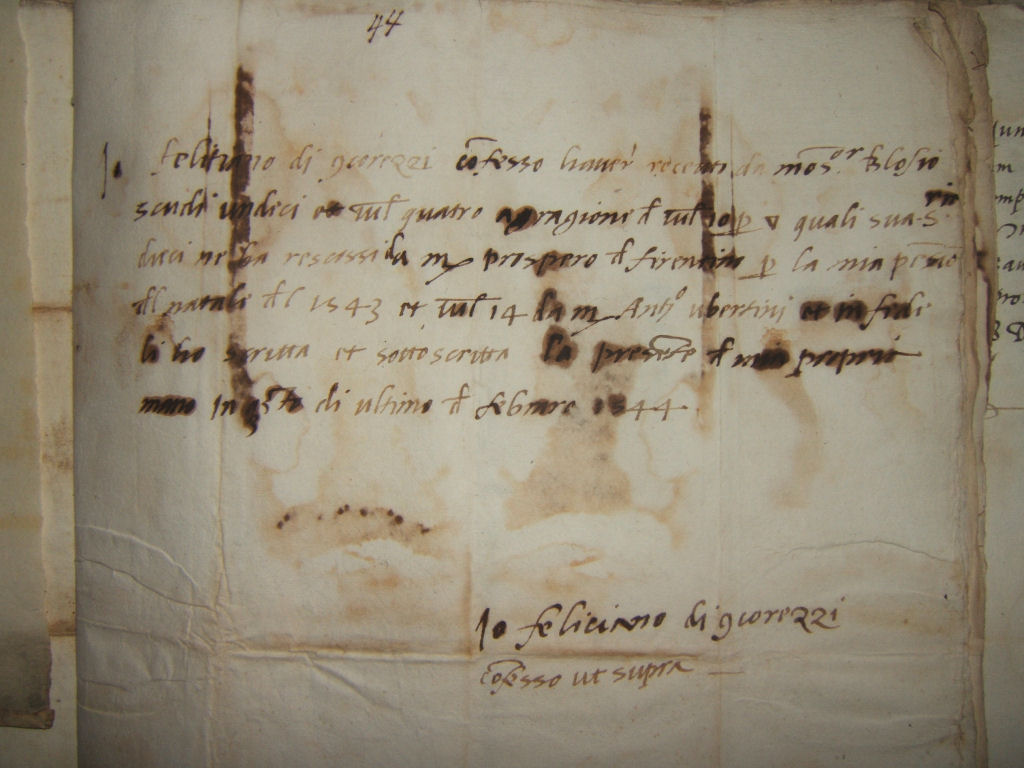 44
Io feliciano di 9corezzi cōfesso haver receuti da mōs.or Blosio
scudi undeci et Iul quatro a ragione d Iul 10 p ▽ quali sua S.ria
dieci ne ha rescossi da m prospero d firenzino p la mia pēsiōe
dl natale dl 1543 et Iul 14 da m Ant.o ubertini et in fede
li ho scritta et sottoscritta la presēte d mia propria
mano In q̄sto di ultimo d febraro 1544.
Io feliciano di 9corezzi
cōfesso ut supra